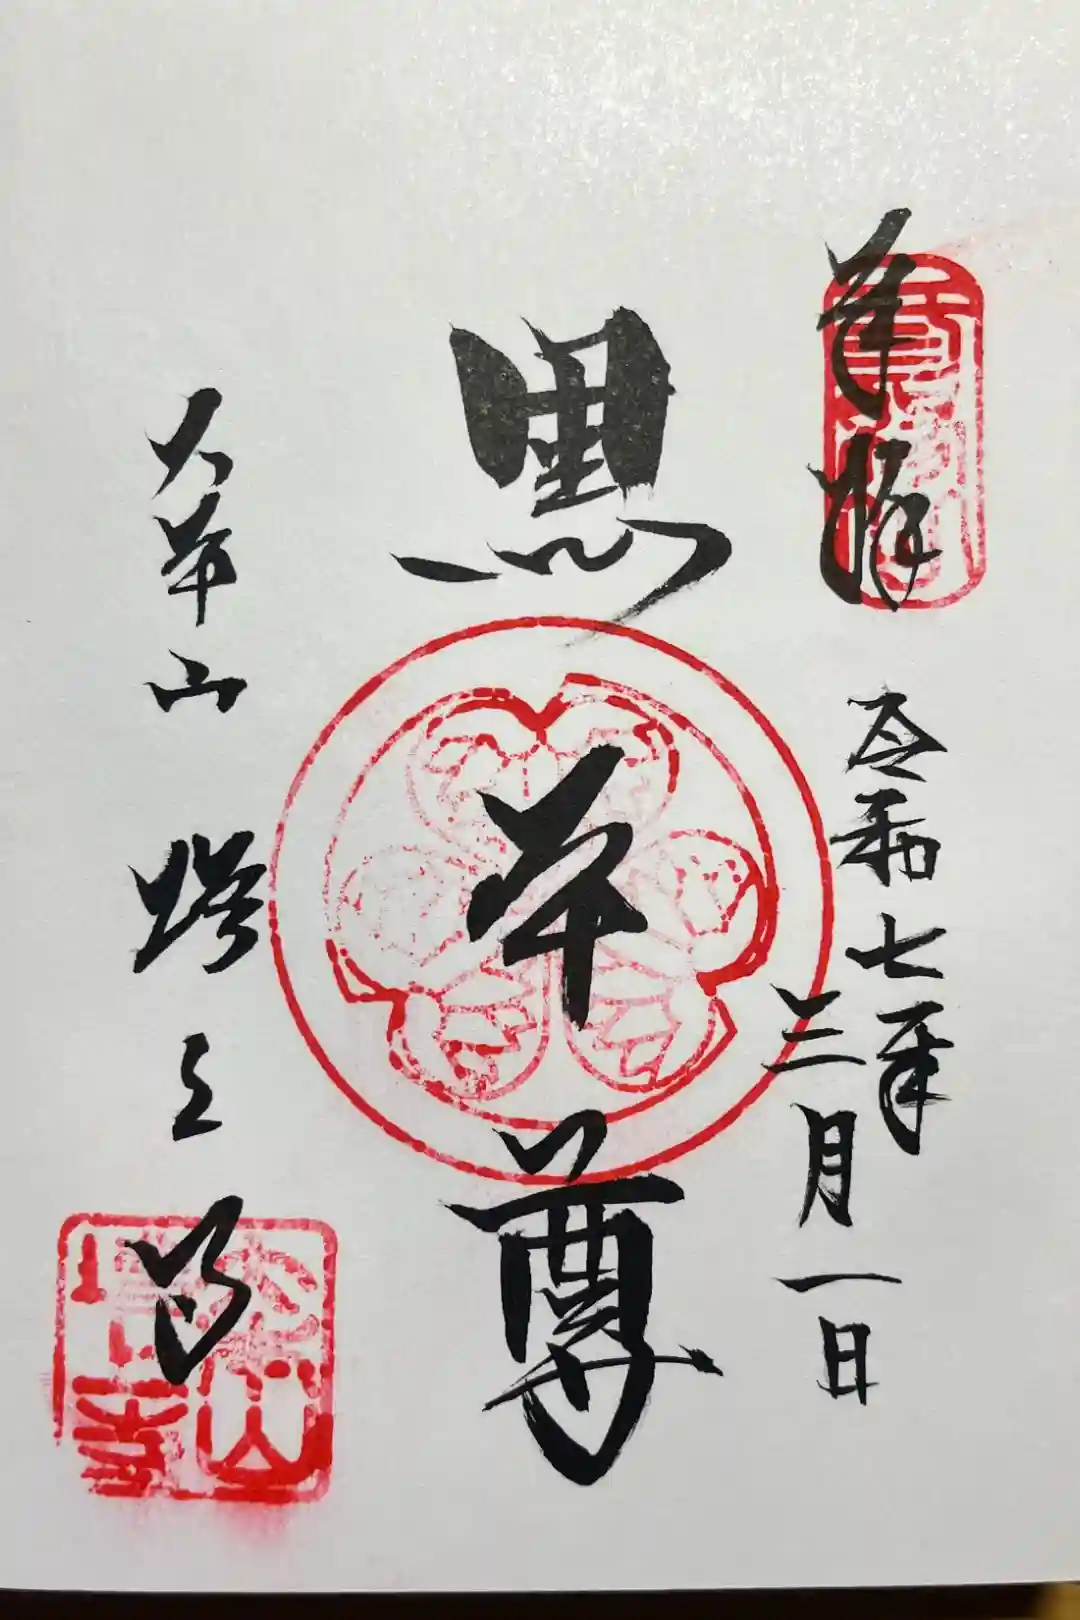 奉拝
令和七年
三月一日
黒本尊
大本山 増上寺